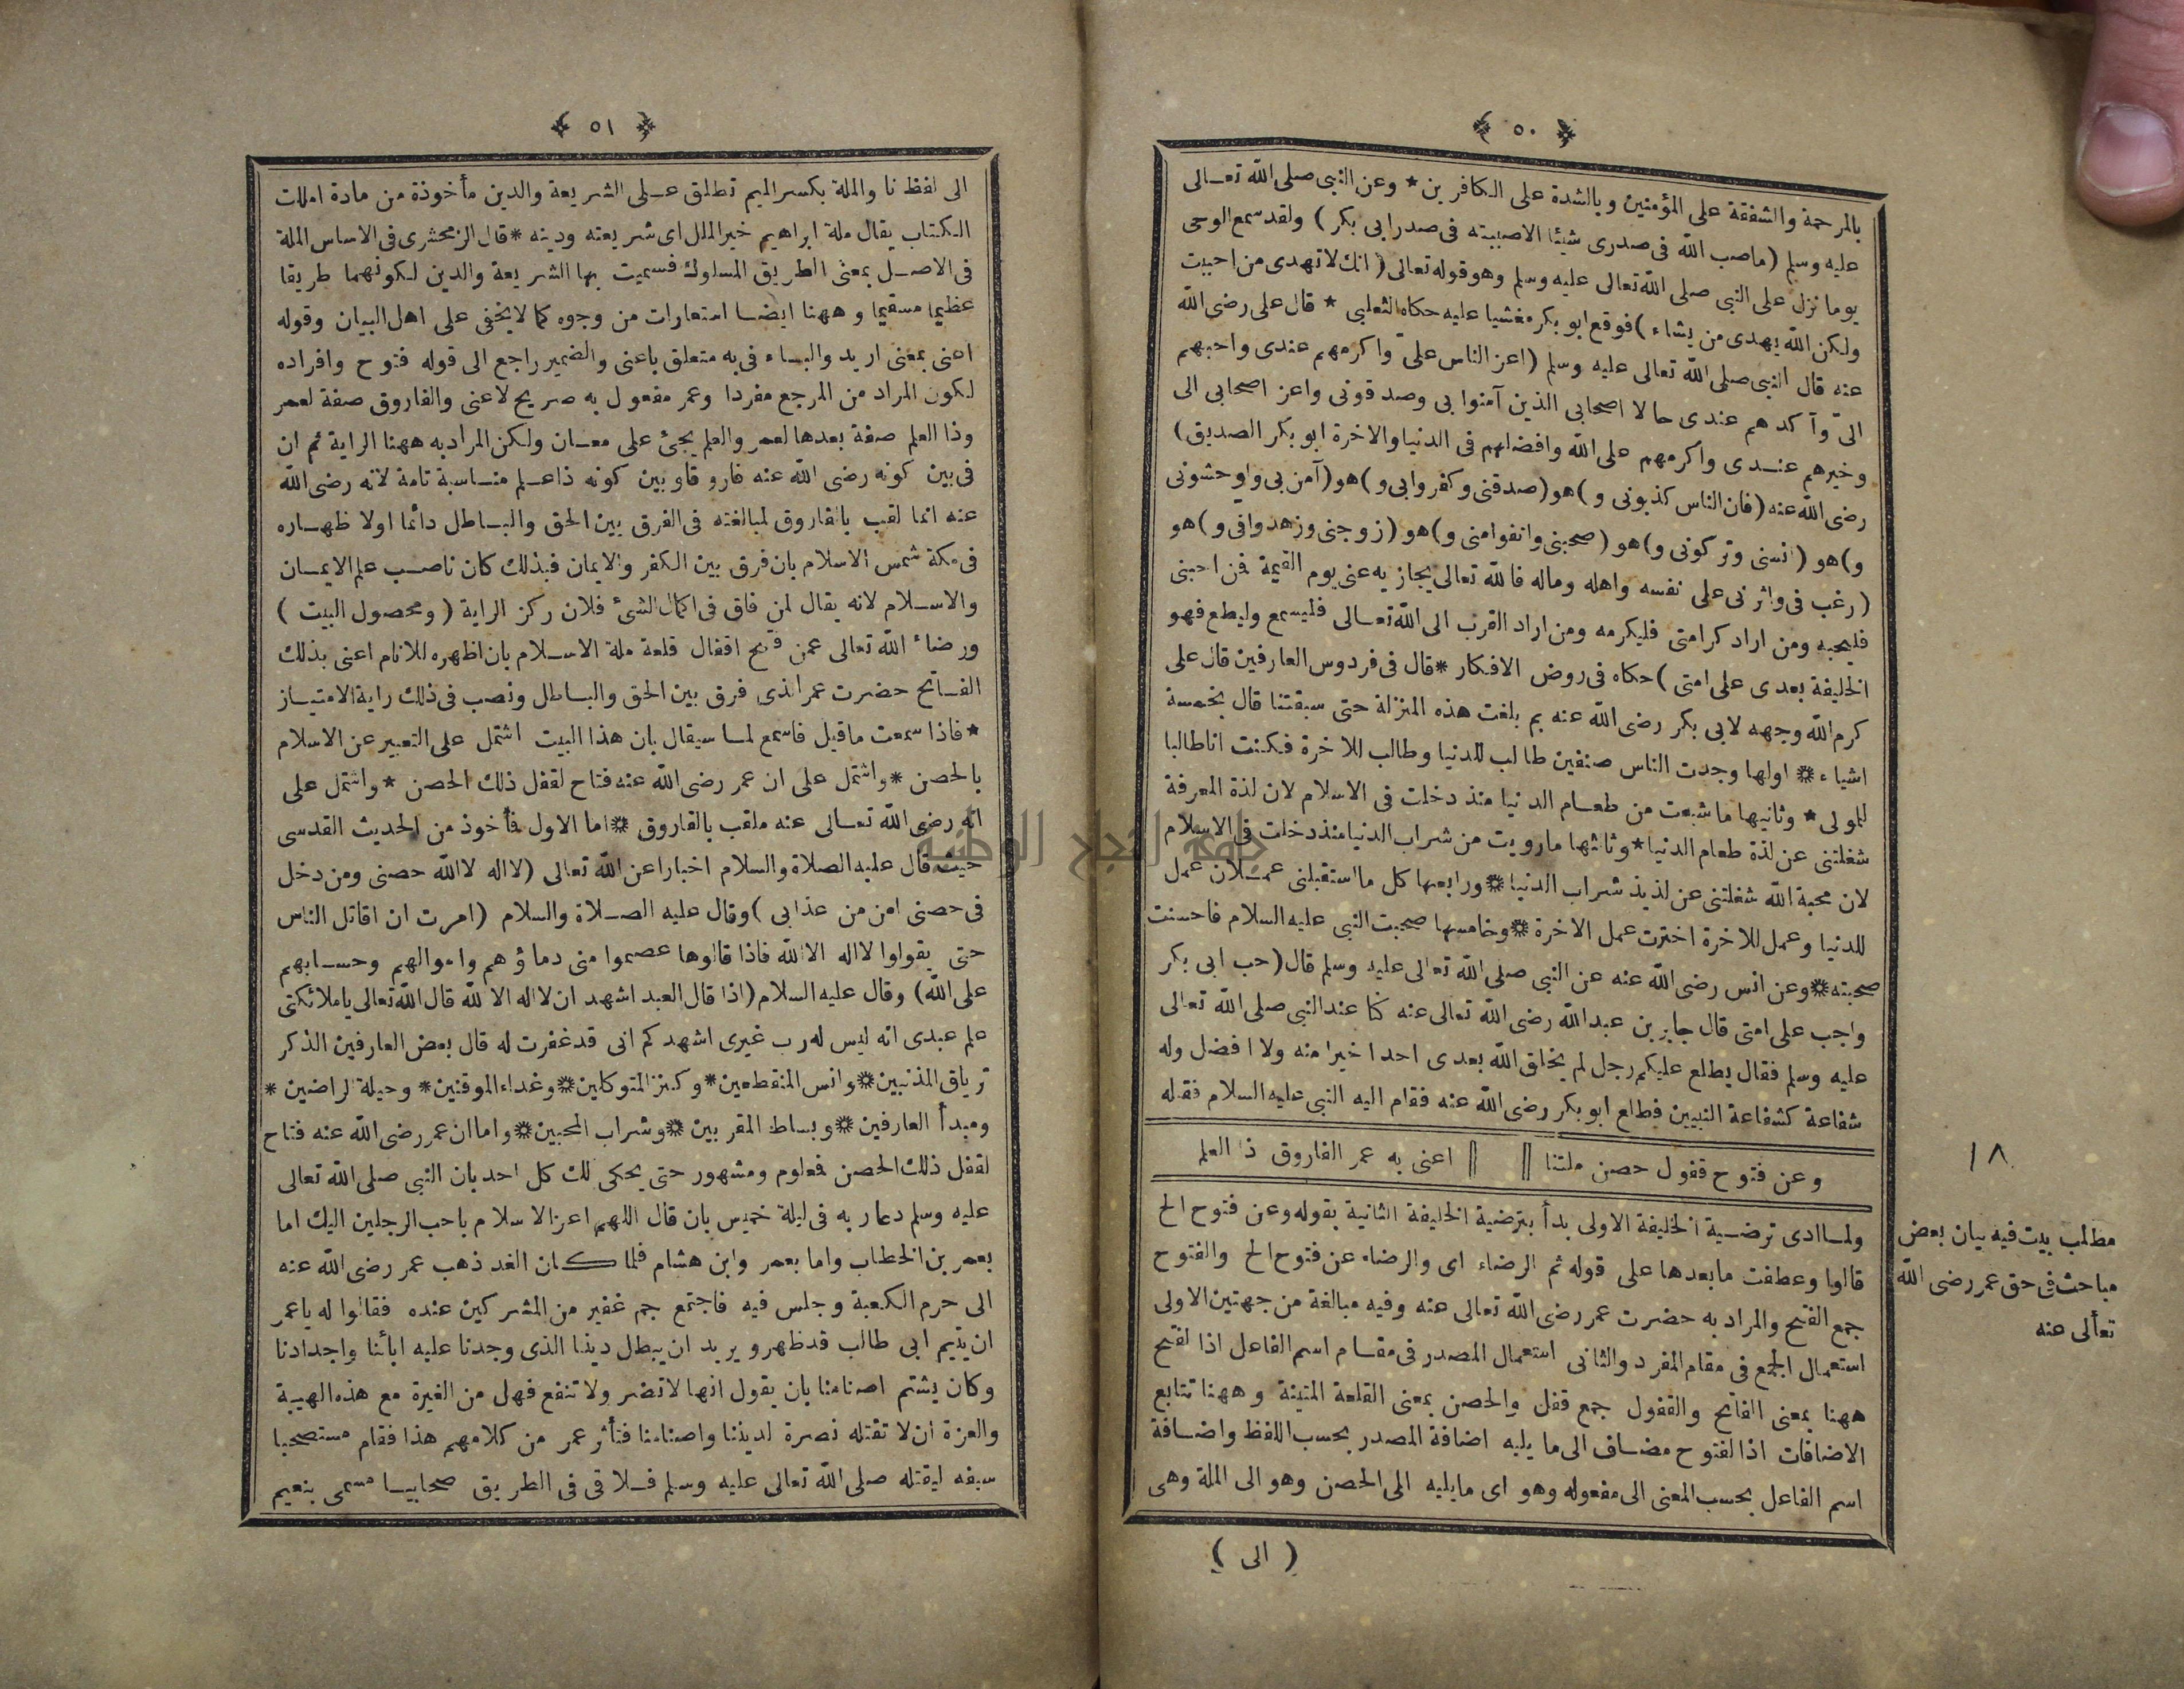 ﴿ ٥٠ ﴾
بالمرحمة والشفقة على المؤمنين وبالشدة على الكافرين * وعن النبى صلى الله تعالى
عليه وسلم (ماصب الله فى صدرى شيئا الاصببته فى صدر ابى بكر) ولقد سمع الوحى
يوما نزل على النبى صلى الله تعالى عليه وسلم وهو قوله تعالى (انك لاتهدى من احببت
ولكن الله يهدى من يشاء) فوقع ابو بكر مغشيا عليه حكاه الثعلبى * قال على رضى الله
عنه قال النبى صلى الله تعالى عليه وسلم (اعز الناس علىّ واكرمهم عندى واحبهم
الىّ وآكدهم عندى حالا اصحابى الذين آمنوا بى وصدقونى واعز اصحابى الى
وخيرهم عندى واكرمهم على الله وافضلهم فى الدنيا والاخرة ابو بكر الصديق)
رضى الله عنه (فان الناس كذبونى و) هو (صدقنى وكفروا بى و) هو (آمن بى واوحشونى
و) هو (انسنى وتركونى و) هو (صحبنى وانفوا منى و) هو (زوجنى وزهدوا فى و) هو
(رغب فى واثرنى على نفسه واهله وماله فالله تعالى يجازيه عنى يوم القيمة فمن احبنى
فليحبه ومن اراد كرامتى فليكرمه ومن اراد القرب الى الله تعالى فليسمع وليطع فهو
الخليفة بعدى على امتى) حكاه فى روض الافكار * قال فى فردوس العارفين قال على
كرم الله وجهه لابى بكر رضى الله عنه بم بلغت هذه المنزلة حتى سبقتنا قال بخمسة
اشياء * اولها وجدت الناس صنفين طالب للدنيا وطالب للاخرة فكنت انا طالبا
للمولى * وثانيها ماشبعت من طعام الدنيا منذ دخلت فى الاسلام لان لذة المعرفة
شغلتنى عن لذة طعام الدنيا * وثالثها مارويت من شراب الدنيا منذ دخلت فى الاسلام
لان محبة الله شغلتنى عن لذيذ شراب الدنيا * ورابعها كل مااستقبلنى عملان عمل
للدنيا وعمل للاخرة اخترت عمل الاخرة * وخامسها صحبت النبى عليه السلام فاحسنت
صحبته * وعن انس رضى الله عنه عن النبى صلى الله تعالى عليه وسلم قال (حب ابى بكر
واجب على امتى قال جابر بن عبدالله رضى الله تعالى عنه كنا عند النبى صلى الله تعالى
عليه وسلم فقال يطلع عليكم رجل لم يخلق الله بعدى احدا خيرا منه ولا افضل وله
شفاعة كشفاعة النبيين فطلع ابو بكر رضى الله عنه فقام اليه النبى عليه السلام فقبله
وعن فتوح قفول حصن ملتنا || || اعنى به عمر الفاروق ذا العلم
١٨
ولما ادى ترضية الخليفة الاولى بدأ بترضية الخليفة الثانية بقوله وعن فتوح الخ
قالوا وعطفت مابعدها على قوله ثم الرضاء اى والرضاء عن فتوح الخ والفتوح
جمع الفتح والمراد به حضرت عمر رضى الله تعالى عنه وفيه مبالغة من جهتين الاولى
استعمال الجمع فى مقام المفرد والثانى استعمال المصدر فى مقام اسم الفاعل اذا لفتح
ههنا بمعنى الفاتح والقفول جمع قفل والحصن بمعنى القلعة المتينة وههنا تتابع
الاضافات اذا لفتوح مضاف الى مايليه اضافة المصدر بحسب اللفظ واضافة
اسم الفاعل بحسب المعنى الى مفعوله وهو اى مايليه الى الحصن وهو الى الملة وهى
مطلب بيت فيه بيان بعض
مباحث فى حق عمر رضى الله
تعالى عنه
(الى)
﴿ ٥١ ﴾
الى لفظ نا والملة بكسر الميم تطلق على الشريعة والدين مأخوذة من مادة امللت
الكتاب يقال ملة ابراهيم خير الملل اى شريعته ودينه * قال الزمخشرى فى الاساس الملة
فى الاصل بمعنى الطريق المسلوك فسميت بها الشريعة والدين لكونهما طريقا
عظيما مستقيما وههنا ايضا استعارات من وجوه كما لايخفى على اهل البيان وقوله
اعنى بمعنى اريد والباء فى به متعلق باعنى والضمير راجع الى قوله فتوح وافراده
لكون المراد من المرجع مفردا وعمر مفعول به صريح لاعنى والفاروق صفة لعمر
وذا العلم صفة بعدها لعمر والعلم يجئ على معان ولكن المراد به ههنا الراية ثم ان
فى بين كونه رضى الله عنه فاروقا وبين كونه ذا علم مناسبة تامة لانه رضى الله
عنه انما لقب بالفاروق لمبالغته فى الفرق بين الحق والباطل دائما اولا ظهاره
فى مكة شمس الاسلام بان فرق بين الكفر والايمان فبذلك كان ناصب علم الايمان
والاسلام لانه يقال لمن فاق فى اكمال الشئ فلان ركز الراية (ومحصول البيت)
ورضاء الله تعالى عمن فتح اقفال قلعة ملة الاسلام بان اظهره للانام اعنى بذلك
الفاتح حضرت عمر الذى فرق بين الحق والباطل ونصب فى ذلك راية الامتياز
* فاذا سمعت ماقيل فاسمع لما سيقال بان هذا البيت اشتمل على التعبير عن الاسلام
بالحصن * واشتمل على ان عمر رضى الله عنه فتاح لقفل ذلك الحصن * واشتمل على
انه رضى الله تعالى عنه ملقب بالفاروق * اما الاول فأخوذ من الحديث القدسى
حيث قال عليه الصلاة والسلام اخبارا عن الله تعالى (لااله لاالله حصنى ومن دخل
فى حصنى امن من عذابى) وقال عليه الصلاة والسلام (امرت ان اقاتل الناس
حتى يقولوا لااله الاالله فاذا قالوها عصموا منى دماؤهم واموالهم وحسابهم
على الله) وقال عليه السلام (اذا قال العبد اشهد ان لااله الا لله قال الله تعالى ياملائكتى
علم عبدى انه ليس له رب غيرى اشهدكم انى قد غفرت له قال بعض العارفين الذكر
ترياق المذنبين * وانس المنقطعين * وكنز المتوكلين * وغداء الموقنين * وحيلة الراضين *
ومبدأ العارفين * وبساط المقربين * وشراب المحبين * واما ان عمر رضى الله عنه فتاح
لقفل ذلك الحصن فمعلوم ومشهور حتى يحكى لك كل احد بان النبى صلى الله تعالى
عليه وسلم دعا ربه فى ليلة خميس بان قال اللهم اعز الاسلام باحب الرجلين اليك اما
بعمر بن الخطاب واما بعمر وابن هشام فلما كان الغد ذهب عمر رضى الله عنه
الى حرم الكعبة وجلس فيه فاجتمع جم غفير من المشركين عنده فقالوا له ياعمر
ان يتيم ابى طالب قد ظهر ويريد ان يبطل ديننا الذى وجدنا عليه ابأنا واجدادنا
وكان يشتم اصنامنا بان يقول انها لاتضر ولا تنفع فهل من الغيرة مع هذه الهيبة
والعزة ان لا تقتله نصرة لديننا واصنامنا فتأثر عمر من كلامهم هذا فقام مستصحبا
سيفه ليقتله صلى الله تعالى عليه وسلم فلاقى فى الطريق صحابيا مسمى بنعيم
جامعة النجاح الوطنية